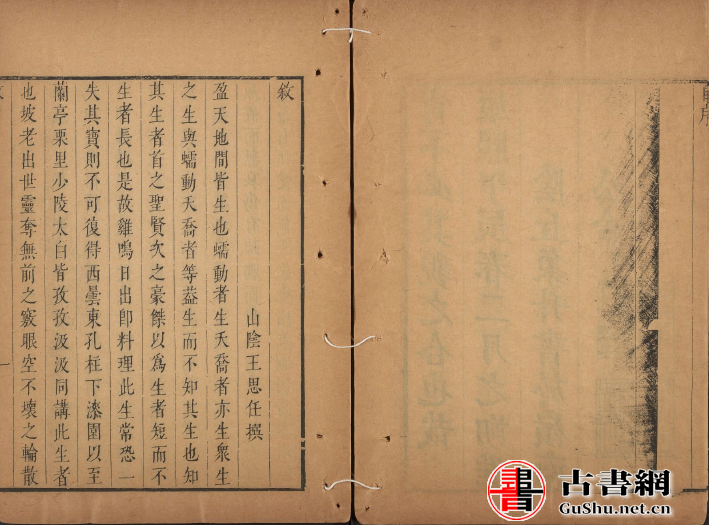 敘
山陰王思任撰
盈天地間皆生也蠕動者生夭喬者亦生衆生
之生與蠕動夭喬者等葢生而不知其生也知
其生者首之聖賢次之豪傑以爲生者短而不
生者長也是故雞鳴日出卽料理此生常恐一
失其寶則不可復得西曇東孔柱下漆園以至
蘭亭栗里少陵太白皆孜孜汲汲同講此生者
也坡老出世靈奪無前之竅眼空不壞之輪散
古書網
GuShu.net.cn
書